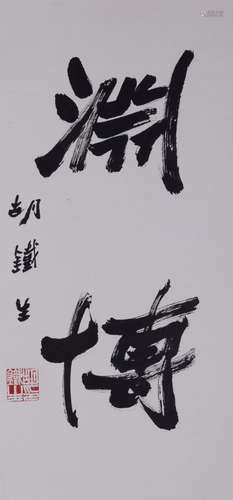 渊
博
胡鐵生